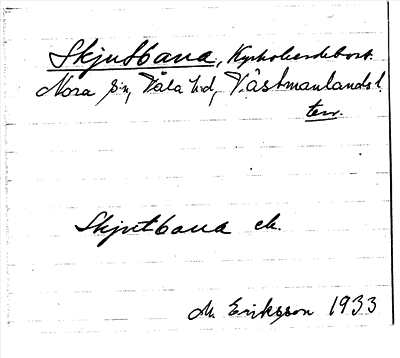 Skjutbana, Kyrkoherdebost.
Nora sn, Våla hd, Västmanlands l.
terr.
Skjutbana ek.
M. Eriksson 1933